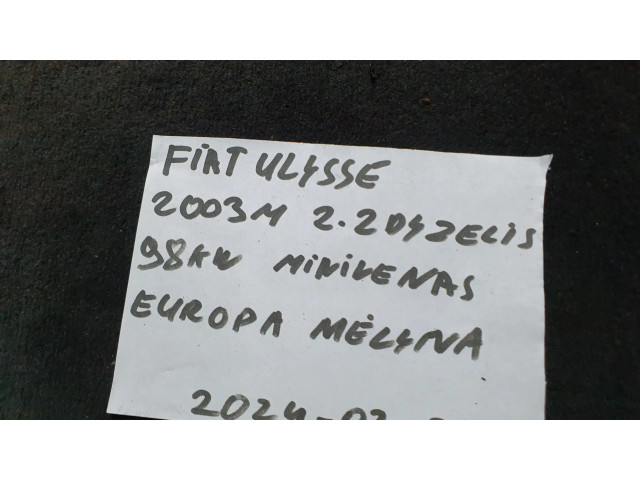 FIAT ULYSSE
2003M 2.2DYZELIS
98KW MINIVENAS
EUROPA MĖLYNA
2024-03